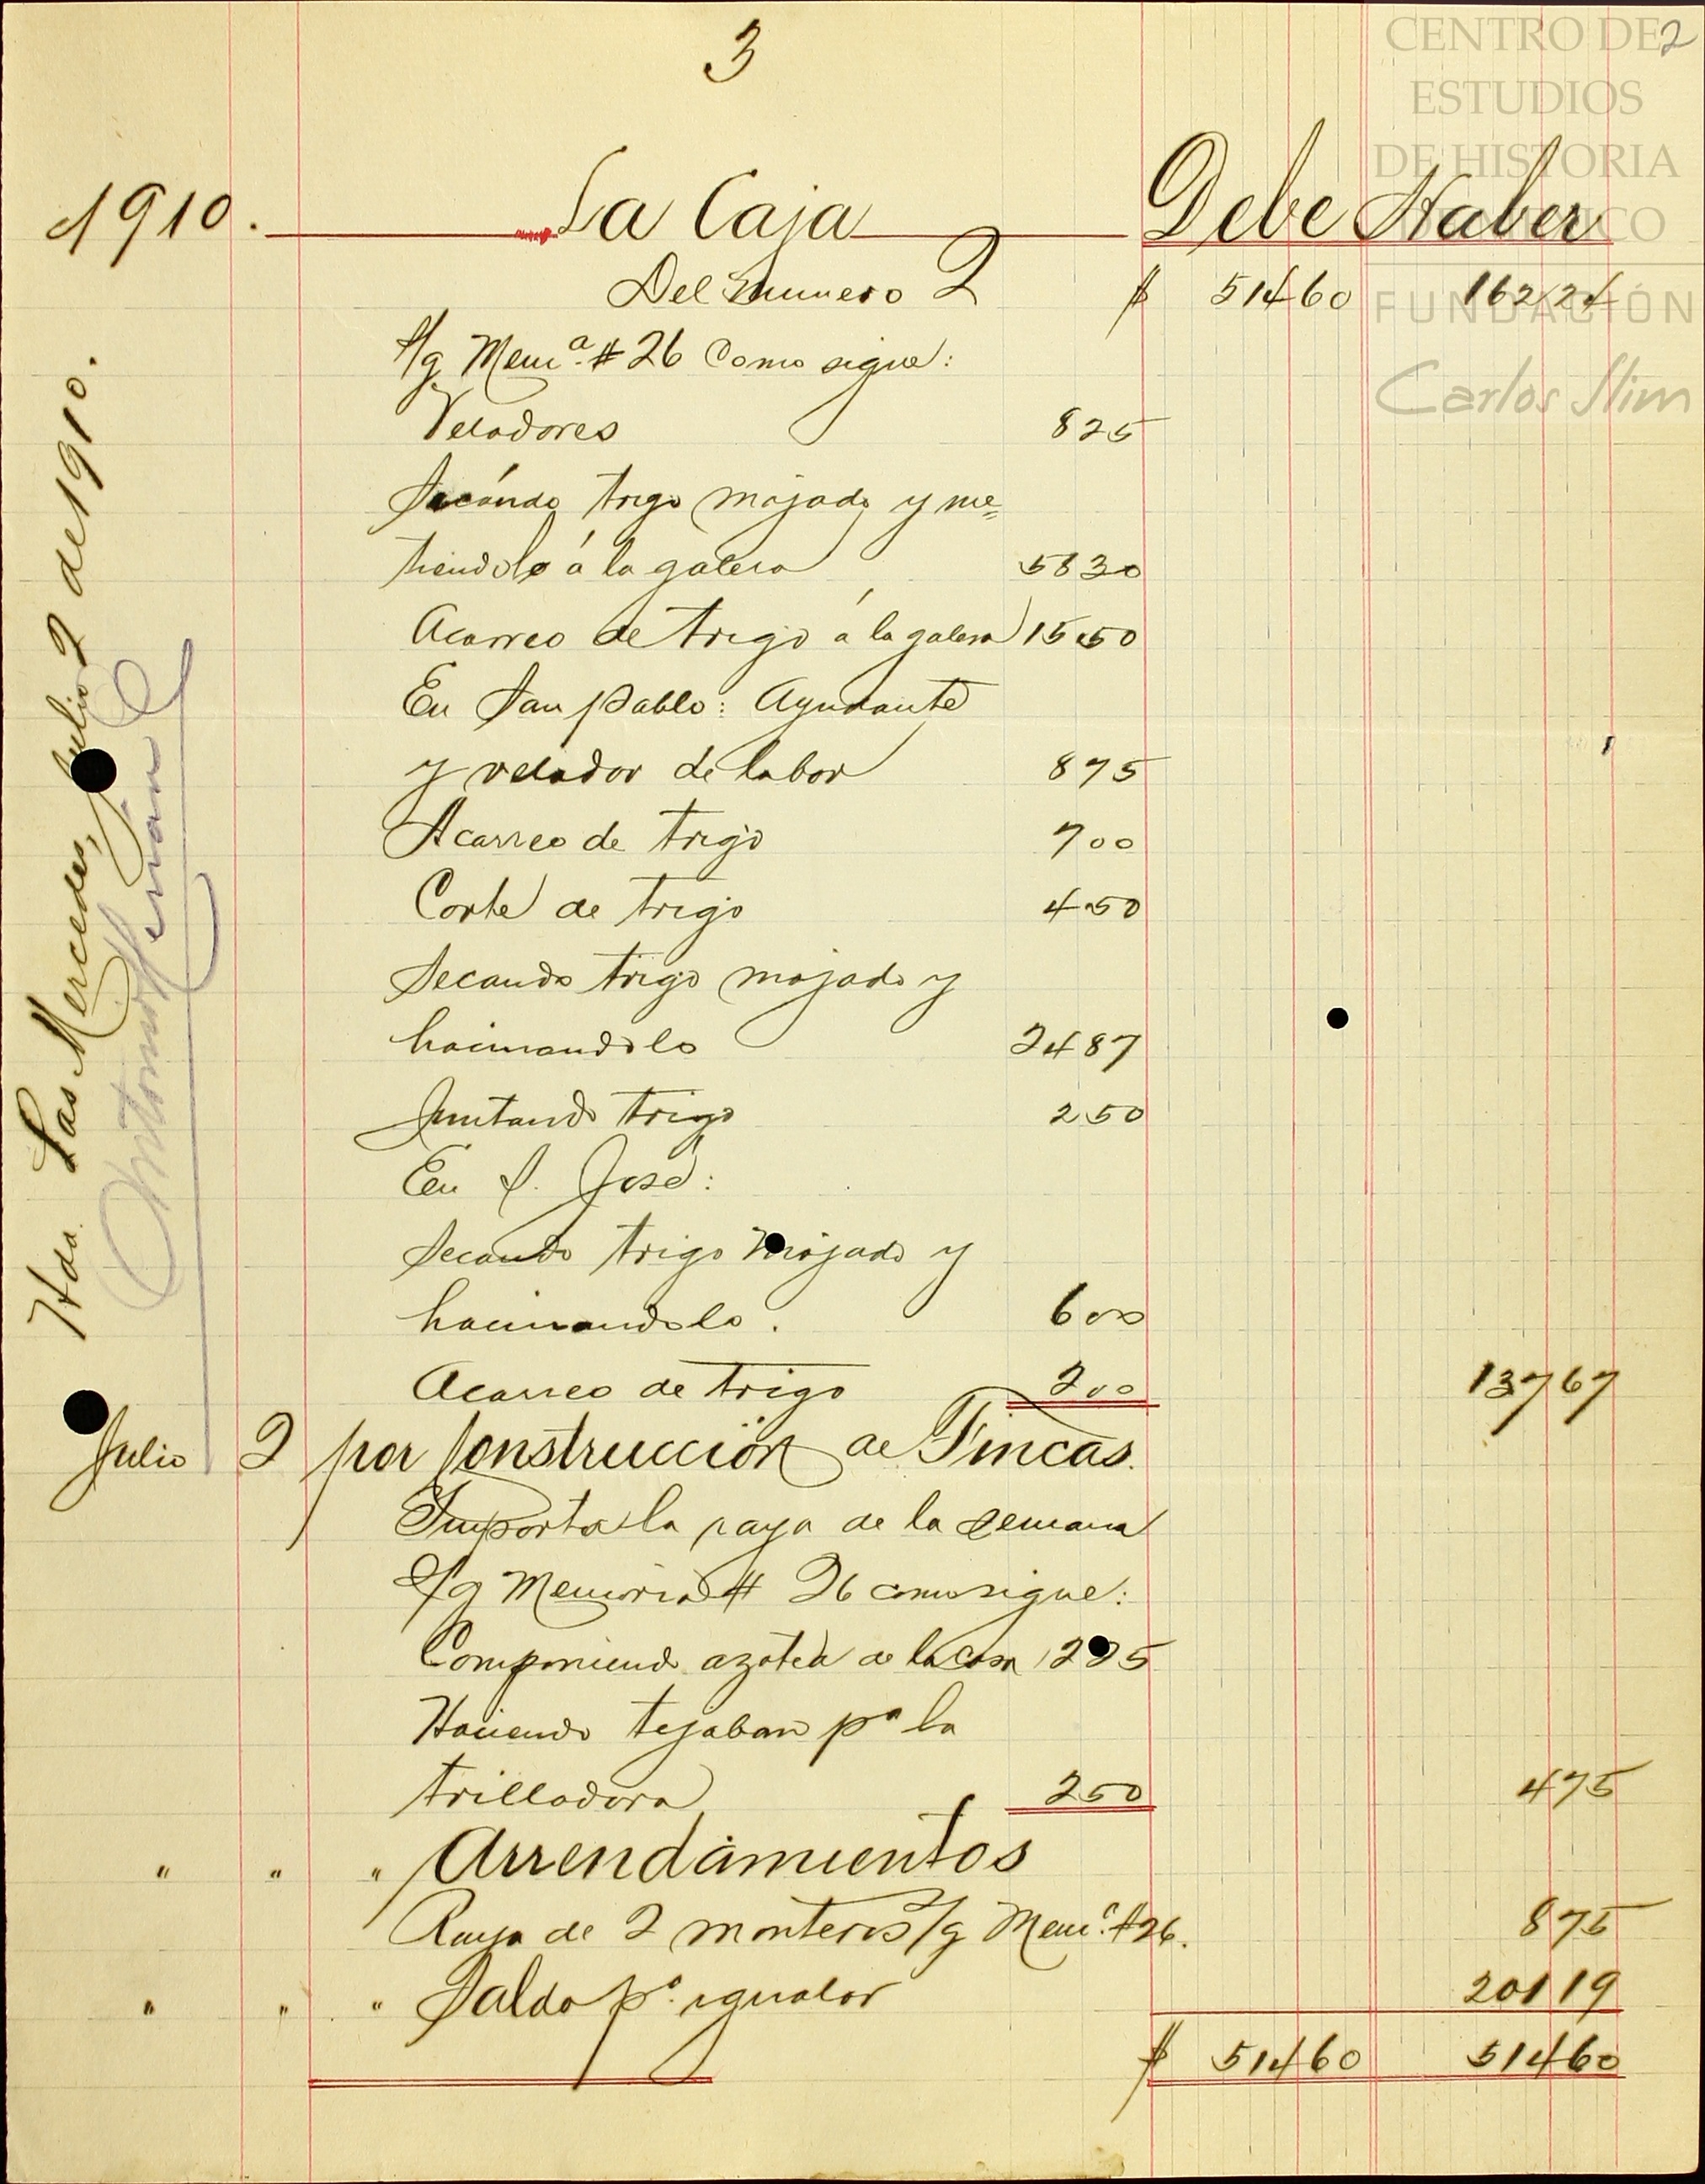 3
2
CENTRO DE
ESTUDIOS
DE HISTORIA
DE MÉXICO
FUNDACIÓN
Carlos Slim
1910. La Caja Debe Haber
Del numero 2 $ 514 60 162 24
S/g Mem.ª #26 como sigue:
Veladores 8 25
Secándo trigo mojado y me=
tiendolo á la galera 58 30
Acarreo de trigo á la galera 15 50
En San Pablo: Ayudante
y velador de labor 8 75
Acarreo de trigo 7 00
Corte de trigo 4 50
Secando trigo mojado y
hacinandolo 24 87
Juntando trigo 2 50
En S. José:
Secando trigo mojado y
hacinandolo. 6 00
Acarreo de trigo 2 00 137 67
Julio 2 por Construcción de Fincas.
Importa la raya de la semana
S/g Memoria # 26 como sigue:
Componiendo azotea de la casa 2 25
Haciendo tejaban pª la
trilladora 2 50 4 75
" " " Arrendamientos
Raya de 2 monteros S/g Mem.ª #26. 8 75
" " " Saldo pª igualar 201 19
$ 514 60 514 60
Hda. Las Mercedes, Julio 2 de 1910.